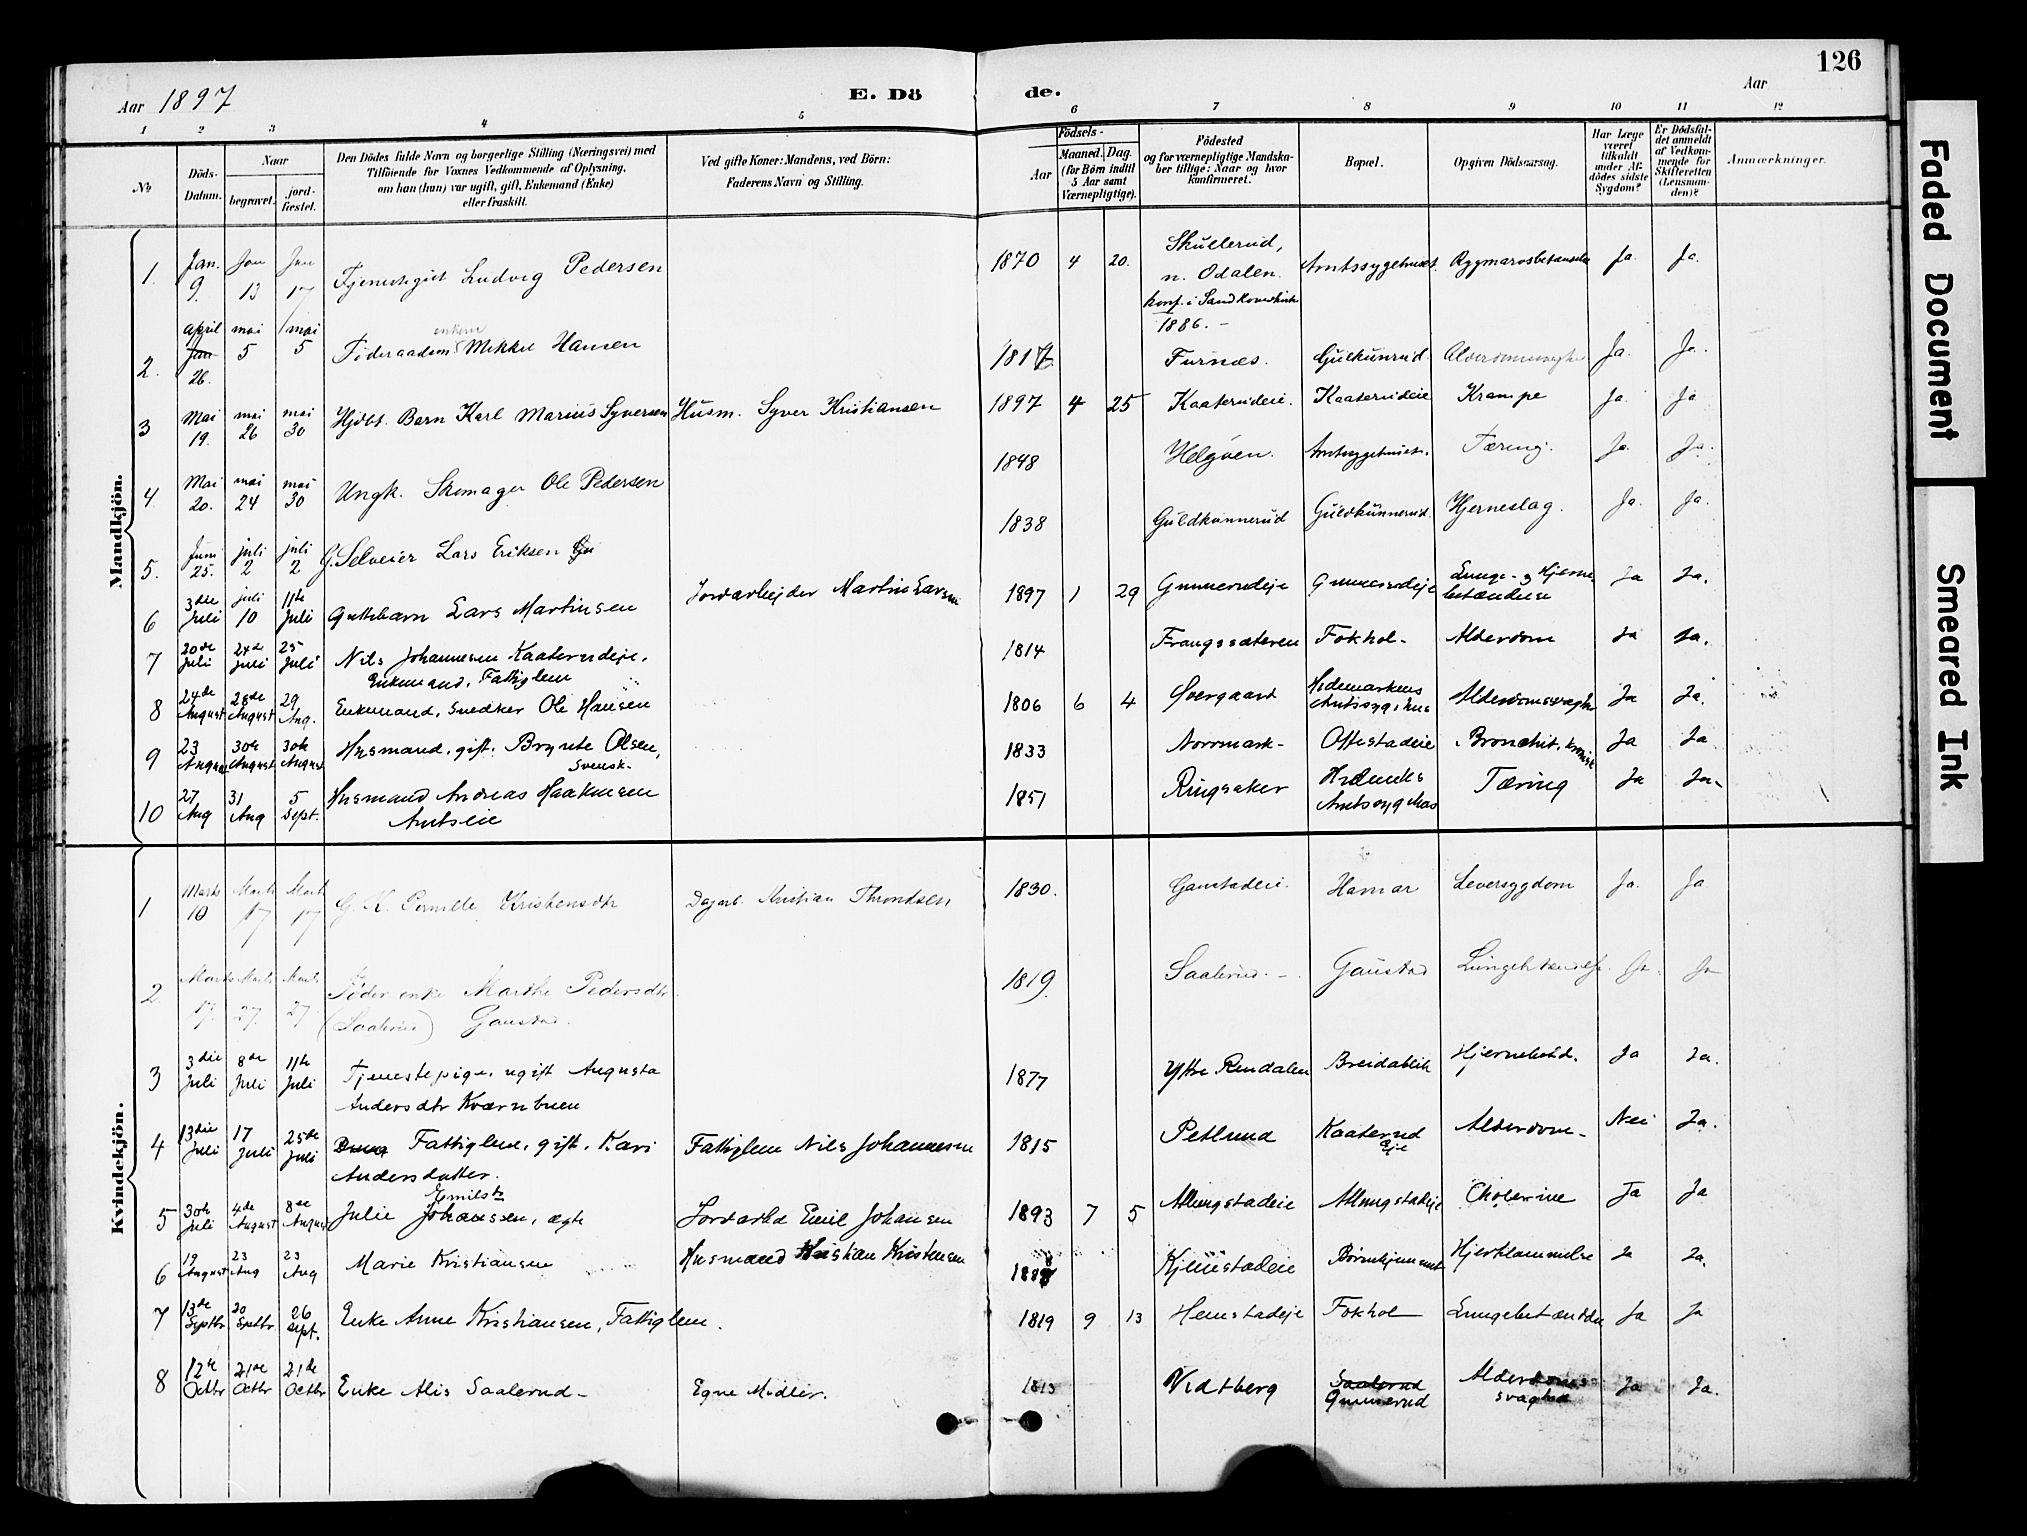 126
Aar 1897
E. Dö
de.
Aar
1 2 3 4 5 6 7 8 9 10 11 12
No
Döds-Datum.
Naar
begravet.
jord-fæstet.
Den Dödes fulde Navn og borgerlige Stilling (Næringsvei) med
Tilföiende for Voxnes Vedkommende af Oplysning,
om han (hun) var ugift, gift, Enkemand (Enke)
eller fraskilt.
Ved gifte Koner: Mandens, ved Börn:
Faderens Navn og Stilling.
Födsels-
Aar
Maaned. Dag.
(for Börn indtil
5 Aar samt
Værnepligtige).
Födested
og for værnepligtige Mandska-
ber tillige: Naar og hvor
konfirmeret.
Bopæl.
Opgiven Dödsaarsag.
Har Læge
været
tilkaldt
under Af-
dödes sidste
Sygdom?
Er Dödsfal-
det anmeldt
af Vedkom-
mende for
Skifteretten
(Lensman-
den)?
Anmærkninger.
Mandkjön.
1. Jan. 9. Jan 13 Jan 17 Ludvig Pedersen 1870 4 20. Skullerud, n. Odalen. konf. i Sand 1886. - Amtssygehuset. Ja. Ja.
2. April Jan 26. mai 5 mai 5 enkem Mikkel Hansen 1817 Furnæs. Ja. Ja.
3 Mai 19. mai 26 mai 30 Barn Karl Marius Syversen Husm. Syver Kristiansen 1897 4 25 Kaaterudeie. Kaaterudeie Krampe Ja. Ja
4 Mai 20. mai 24 mai 30 Ungk. Skomager Ole Pedersen 1848 Helgöen. Tæring. Ja. Ja.
5. Juni 25. juli 2 juli 2 G. Selveier Lars Eriksen 1838 Guldkunnerud Guldkunnerud Hjerneslag. Ja. Ja.
6 3die Juli juli 10 11te Juli Guttebarn Lars Martinsen Jordarbejder Martin Larsen 1897 1 29 Gunnerudeje Gunnerudeje Lunge- og Hjerne betændelse Ja Ja.
7 20de Juli 24de Juli 25 Juli Nils Johannesen Kaaterudeje. Enkemand. Fattiglem 1814 Frangssæteren Fokhol- Alderdom Ja Ja.
8 24de August 28de August 29 Aug. Enkemand, Snedker Ole Hansen 1806 6 4 Övergaard Hedemarkens Amtssygehus Ja Ja.
9 23 August 30te August 30te August Husmand, gift. Brynte Olsen, Svensk- 1833 Norrmark- Ottestadeie Bronchit. kronisk Ja Ja
10 27 Aug 31 Aug 5 Sept. Husmand Andreas Haakensen Amtseie 1851 Ringsaker Tæring Ja Ja.
Kvindekjön.
1 Marts 10 Marts 17 Marts 17 G. K. Pernille Kristensdtr Dagarb. Kristian Throndsen 1830. Gaustadeie. Hamar Leversygdom Ja. Ja
2 Marts 17. Marts 27. Marts 27 Föder enke Marthe Pedersdtr (Saalerud) Gaustad. 1819. Saalerud. - Gaustad Ja. Ja
3 3die Juli 8de Juli 11te Juli Tjenestepige, ugift Augusta Andersdtr Kværnbuen 1877 Yttre Rendalen Breidablik Ja Ja.
4 13die Juli 17 Juli 25de Juli Fattiglem, gift. Kari Andersdatter. Fattiglem Nils Johannesen 1815 Petlund Kaaterud Eje Alderdom- Nei Ja.
5 30te Juli 4de August 8de August Julie Emilsdr Johansen, ægte Jordarbd Emil Johansen 1893 7 5 Allungstadeie Allungstadeje Cholerine Ja Ja
6 19 August 23 Aug 23 Aug Marie Kristiansen Husmand Kristian Kristensen Börnehjemmet Hjertlammelse Ja Ja.
7 13de Septbr 20 Septbr 26 Sept. Enke Anne Kristiansen, Fattiglem. 1819 9 13 Hemstadeje Fokhol Lungebetændelse Ja Ja
8 12te Octbr 21de Octbr 21de Octbr Enke Alis Saalerud- Egne Midler. 1813 Vidtberg Saalerud Gunnerud Alderdoms svaghed Ja Ja.
Faded Document
Smeared Ink